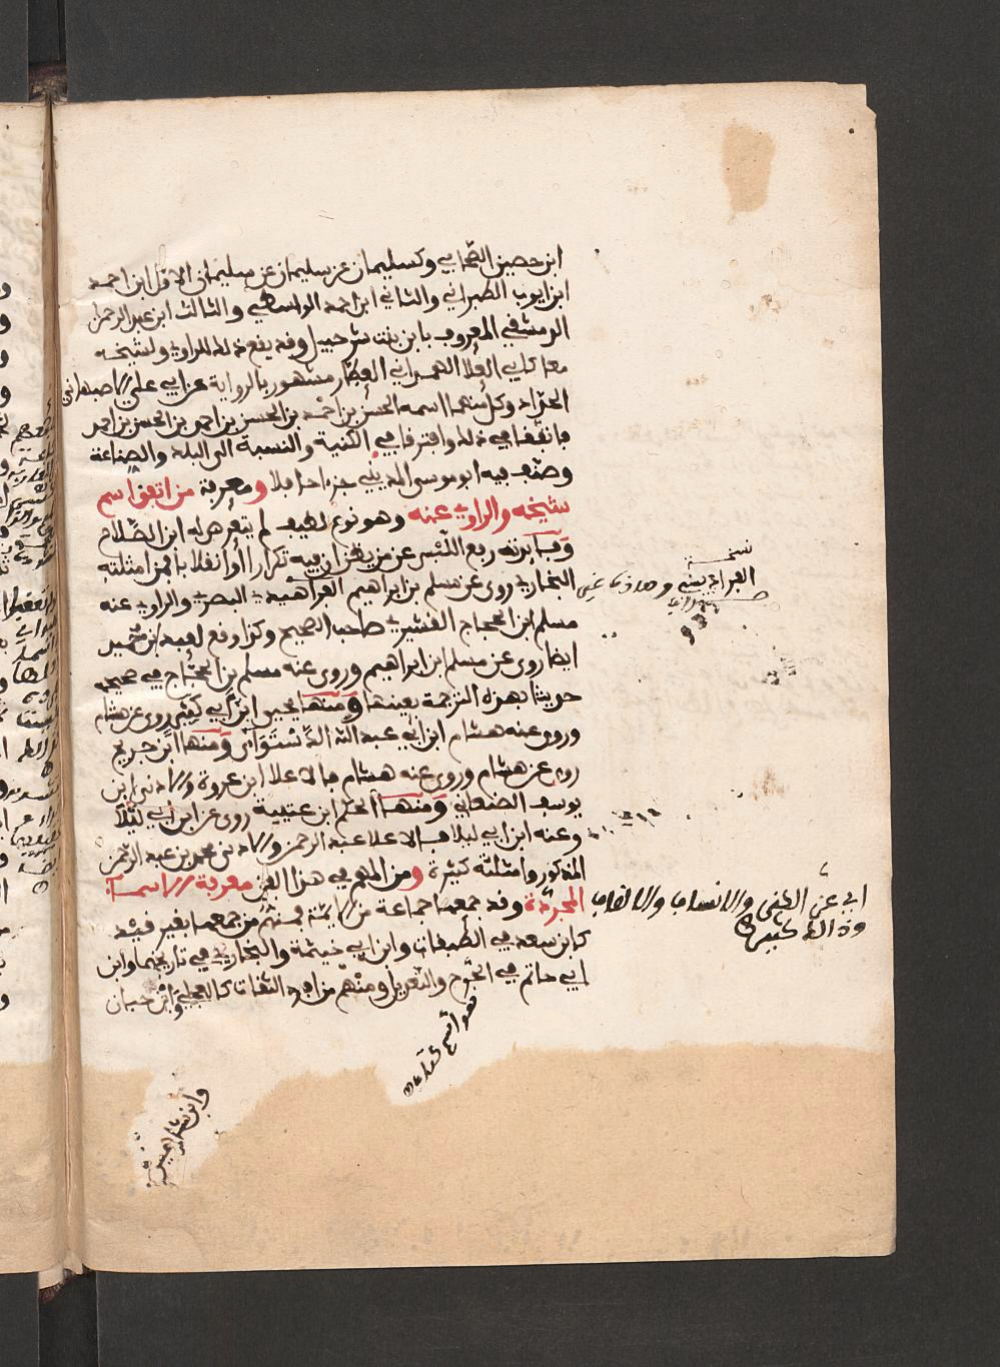 ابن حصين الصحابي وكسليمان عن سليمان عن سليمان الاول ابن احمد
ابن ايوب الطبراني والثاني ابن احمد الواسطي والثالث ابن عبد الرحمن
الدمشقي المعروف بابن بنت شرحبيل وقد يقع ذلك للراوي ولشيخه
معا كابي العلا الهمداني العطار مشهور بالرواية عن ابي علي الاصبهاني
الحداد وكل منهما اسمه الحسن بن احمد بن الحسن بن احمد بن الحسن بن احمد
فاتفقا في ذلك وافترقا في الكنية والنسبة الى البلد والصناعة
وصنف فيه ابو موسى المديني جزءا حافلا ومعرفة من اتفق اسم
شيخه والراوي عنه وهو نوع لطيف لم يتعرض له ابن الصلاح
وفايدته رفع اللبس عن من يظن ان فيه تكرارا او انقلابا فمن امثلته
البخاري روى عن مسلم بن ابراهيم الفراهيدي البصري والراوي عنه
مسلم ابن الحجاج القشيري صاحب الصحيح وكذا وقع لعبد ابن حميد
ايضا روى عن مسلم ابن ابراهيم وروى عنه مسلم بن الحجاج في صحيحه
حديثا بهذه الترجمة بعينها ومنها يحيى ابن ابي كثير روى عن هشام
وروى عنه هشام ابن ابي عبد الله الدستوائي ومنها ابن جريج
روى عن هشام وروى عنه هشام فالاعلا ابن عروة والادنى ابن
يوسف الصنعاني ومنها الحكم ابن عتيبة روى عن ابن ابي ليلا
وعنه ابن ابي ليلا فالاعلا عبد الرحمن والادنى محمد بن عبد الرحمن
المذكور وامثلته كثيرة ومن المهم في هذا الفن معرفة الاسماء
المجردة وقد جمعها جماعة من الايمة فمنهم من جمعها بغير قيد
كابن سعد في الطبقات وابن ابي خيثمة والبخاري في تاريخهما وابن
ابي حاتم في الجرح والتعديل ومنهم من افرد الثقات كالعجلي وابن حبان
نسخة
الفراديسي
اي عن الكنى والانساب والالقاب
وذالك كثير
وابن شاهين